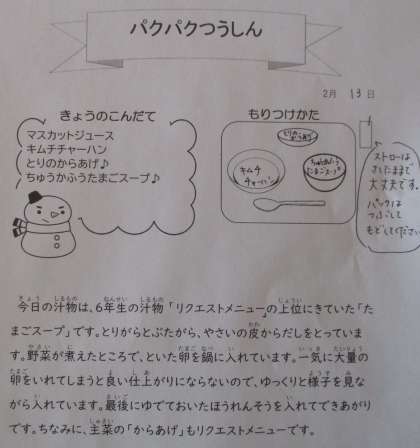 パクパクつうしん
2月 13日
きょうのこんだて
マスカットジュース
キムチチャーハン
とりのからあげ♪
ちゅうかふうたまごスープ♪
もりつけかた
とりの
からあげ
キムチ
チャーハン
ちゅうかふう
たまごスープ
ストローは
さしたままで
大丈夫です。
パックは
つぶして
もどしてください
今日の汁物は、6年生の汁物「リクエストメニュー」の上位にきていた「た
まごスープ」です。とりがらとぶたがら、やさいの皮からだしをとっていま
す。野菜が煮えたところで、といた卵を鍋に入れています。一気に大量の
卵をいれてしまうと良い仕上がりにならないので、ゆっくりと様子を見な
がら入れています。最後にゆでておいたほうれんそうを入れてできあがり
です。ちなみに、主菜の「からあげ」もリクエストメニューです。